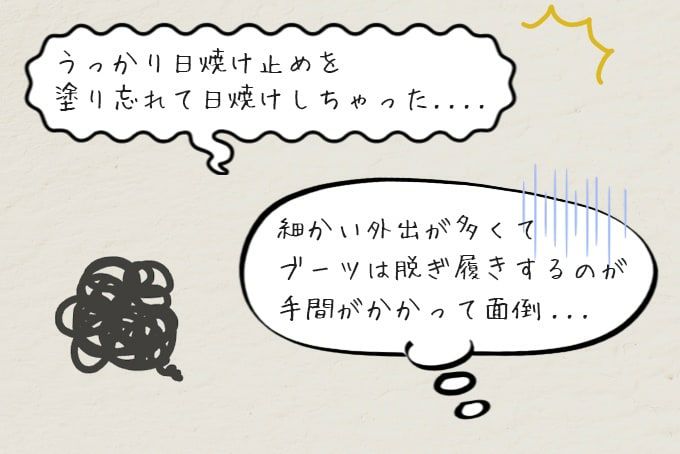 うっかり日焼け止めを
塗り忘れて日焼けしちゃった....
細かい外出が多くて
ブーツは脱ぎ履きするのが
手間がかかって面倒...